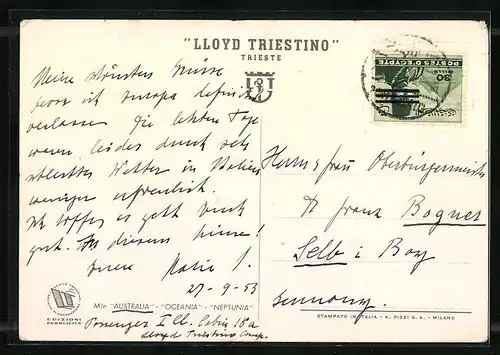 "LLOYD TRIESTINO"
TRIESTE
30
MILLS
POSTES D'EGYPTE
Meine schönsten Grüsse
bevor ich Europa definitiv
verlasse. Die letzten Tage
waren leider durch sehr
schlechtes Wetter in Italien
weniger erfreulich.
Ich hoffe, es geht Euch
gut. In diesem Sinne!
Eure
27-9-53
Herrn & Frau Oberbürgermeister
Dr Franz Bogner
Selb i Bay
Germany.
M/n "AUSTRALIA" - "OCEANIA" - "NEPTUNIA"
EDIZIONI
PUBBLICITÀ
Passenger I Cl. Cabin 18a
Lloyd Triestino Comp.
STAMPATO IN ITALIA - A. PIZZI S. A. - MILANO